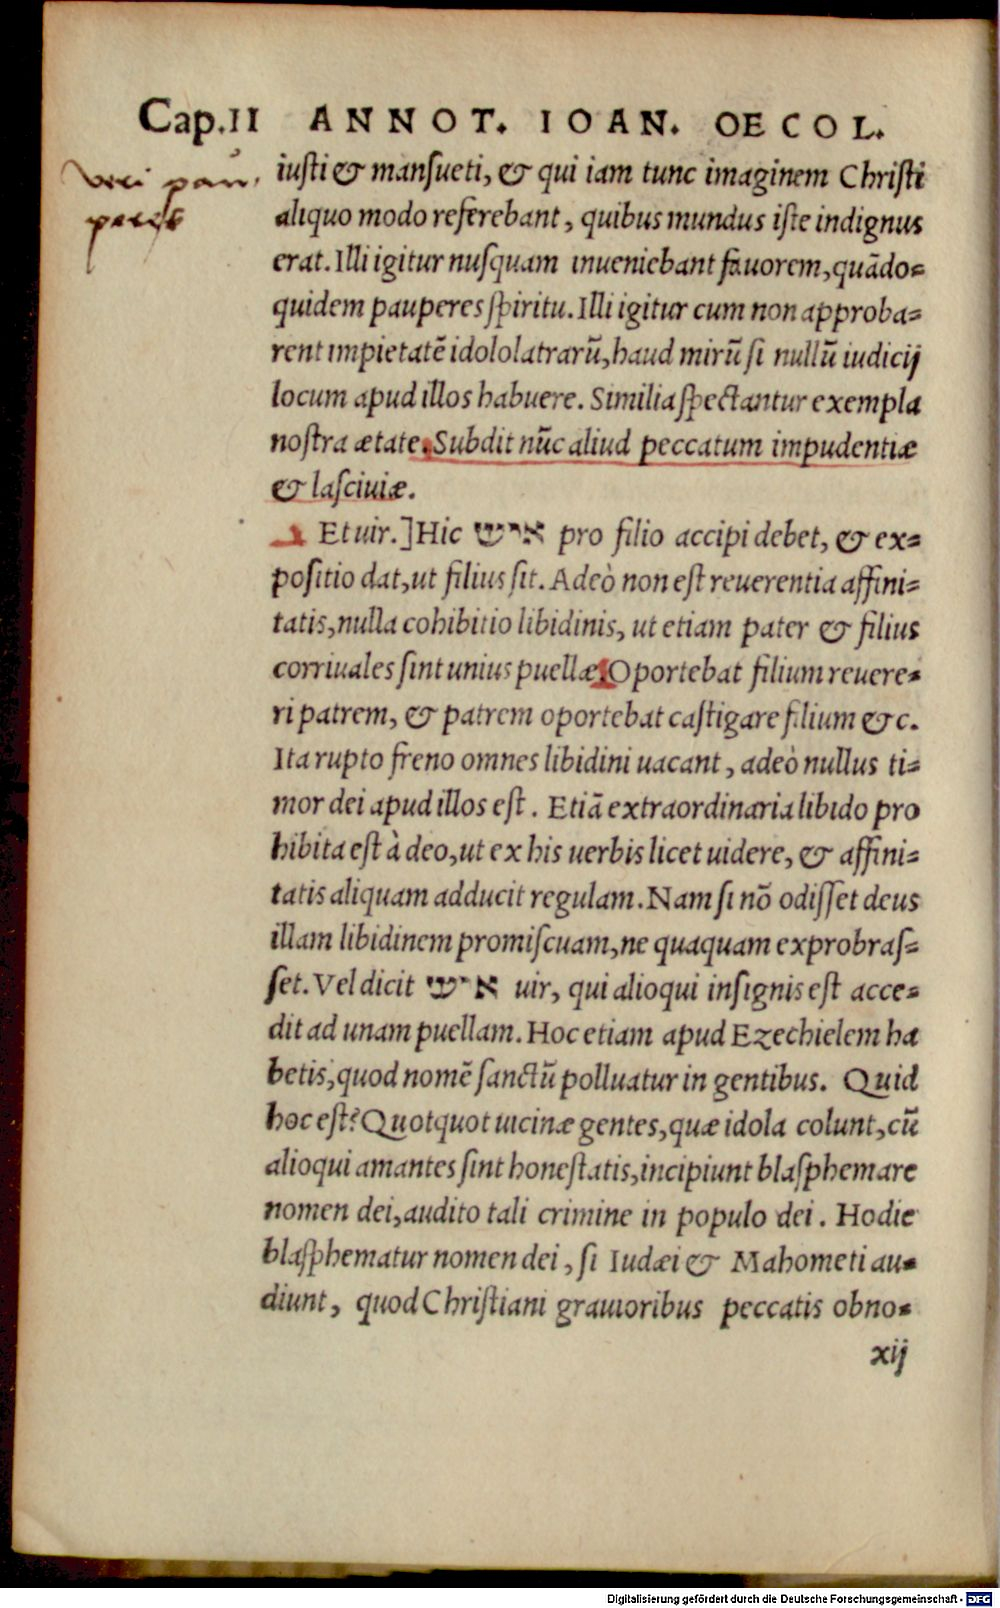 Cap.II ANNOT. IOAN. OECOL.
veri pau,
peres
iusti & mansueti, & qui iam tunc imaginem Christi
aliquo modo referebant, quibus mundus iste indignus
erat. Illi igitur nusquam inueniebant fauorem, quādo-
quidem pauperes spiritu. Illi igitur cum non approba-
rent impietatē idololatrarū, haud mirū si nullū iudicij
locum apud illos habuere. Similia spectantur exempla
nostra ætate. Subdit nūc aliud peccatum impudentiæ
& lasciuiæ.
Et uir.] Hic איש pro filio accipi debet, & ex-
positio dat, ut filius sit. Adeò non est reuerentia affini-
tatis, nulla cohibitio libidinis, ut etiam pater & filius
corriuales sint unius puellæ. Oportebat filium reuere-
ri patrem, & patrem oportebat castigare filium &c.
Ita rupto freno omnes libidini uacant, adeò nullus ti-
mor dei apud illos est. Etiā extraordinaria libido pro
hibita est à deo, ut ex his uerbis licet uidere, & affini-
tatis aliquam adducit regulam. Nam si nō odisset deus
illam libidinem promiscuam, ne quaquam exprobras-
set. Vel dicit איש uir, qui alioqui insignis est acce-
dit ad unam puellam. Hoc etiam apud Ezechielem ha
betis, quod nomē sanctū polluatur in gentibus. Quid
hoc est? Quotquot uicinæ gentes, quæ idola colunt, cū
alioqui amantes sint honestatis, incipiunt blasphemare
nomen dei, audito tali crimine in populo dei. Hodie
blasphematur nomen dei, si Iudæi & Mahometi au-
diunt, quod Christiani grauioribus peccatis obno-
xij
Digitalisierung gefördert durch die Deutsche Forschungsgemeinschaft - DFG